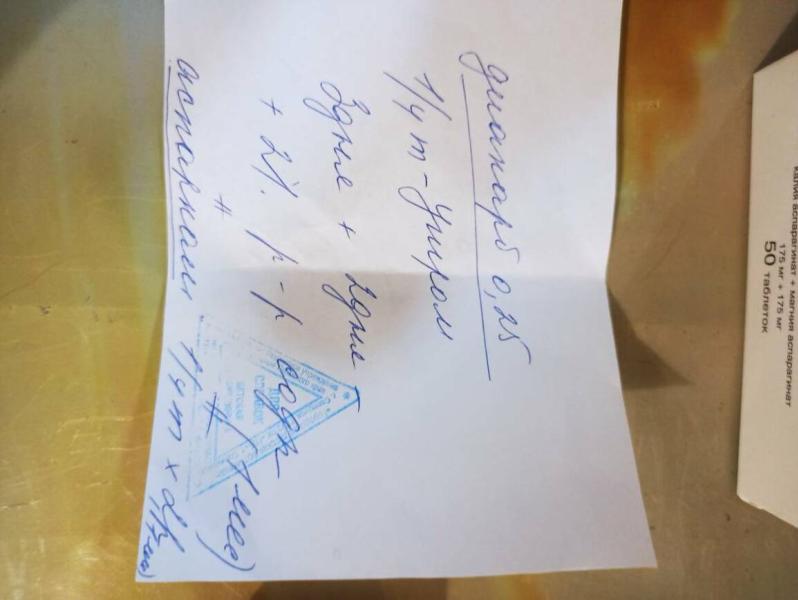 диакарб 0,25
1/4 т - утром
3 дня + 2 дня
+ 2%. р-р соды
+ (1 мес)
аспаркам 1/4 т х 2 р
(1 мес)
ДЛЯ
СПРАВОК
калия аспарагинат + магния аспарагинат
175 мг + 175 мг
50 таблеток